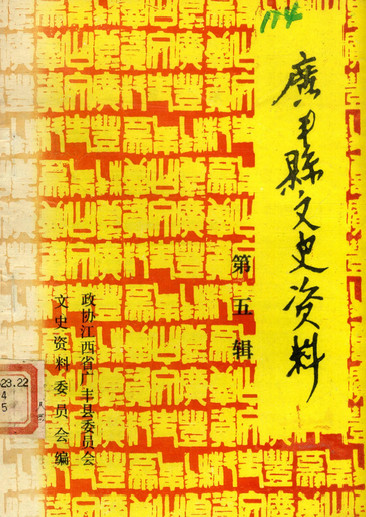 114
廣丰縣文史资料
第五辑
政协江西省广丰县委员会
文史资料委员会编
623.22
4
5